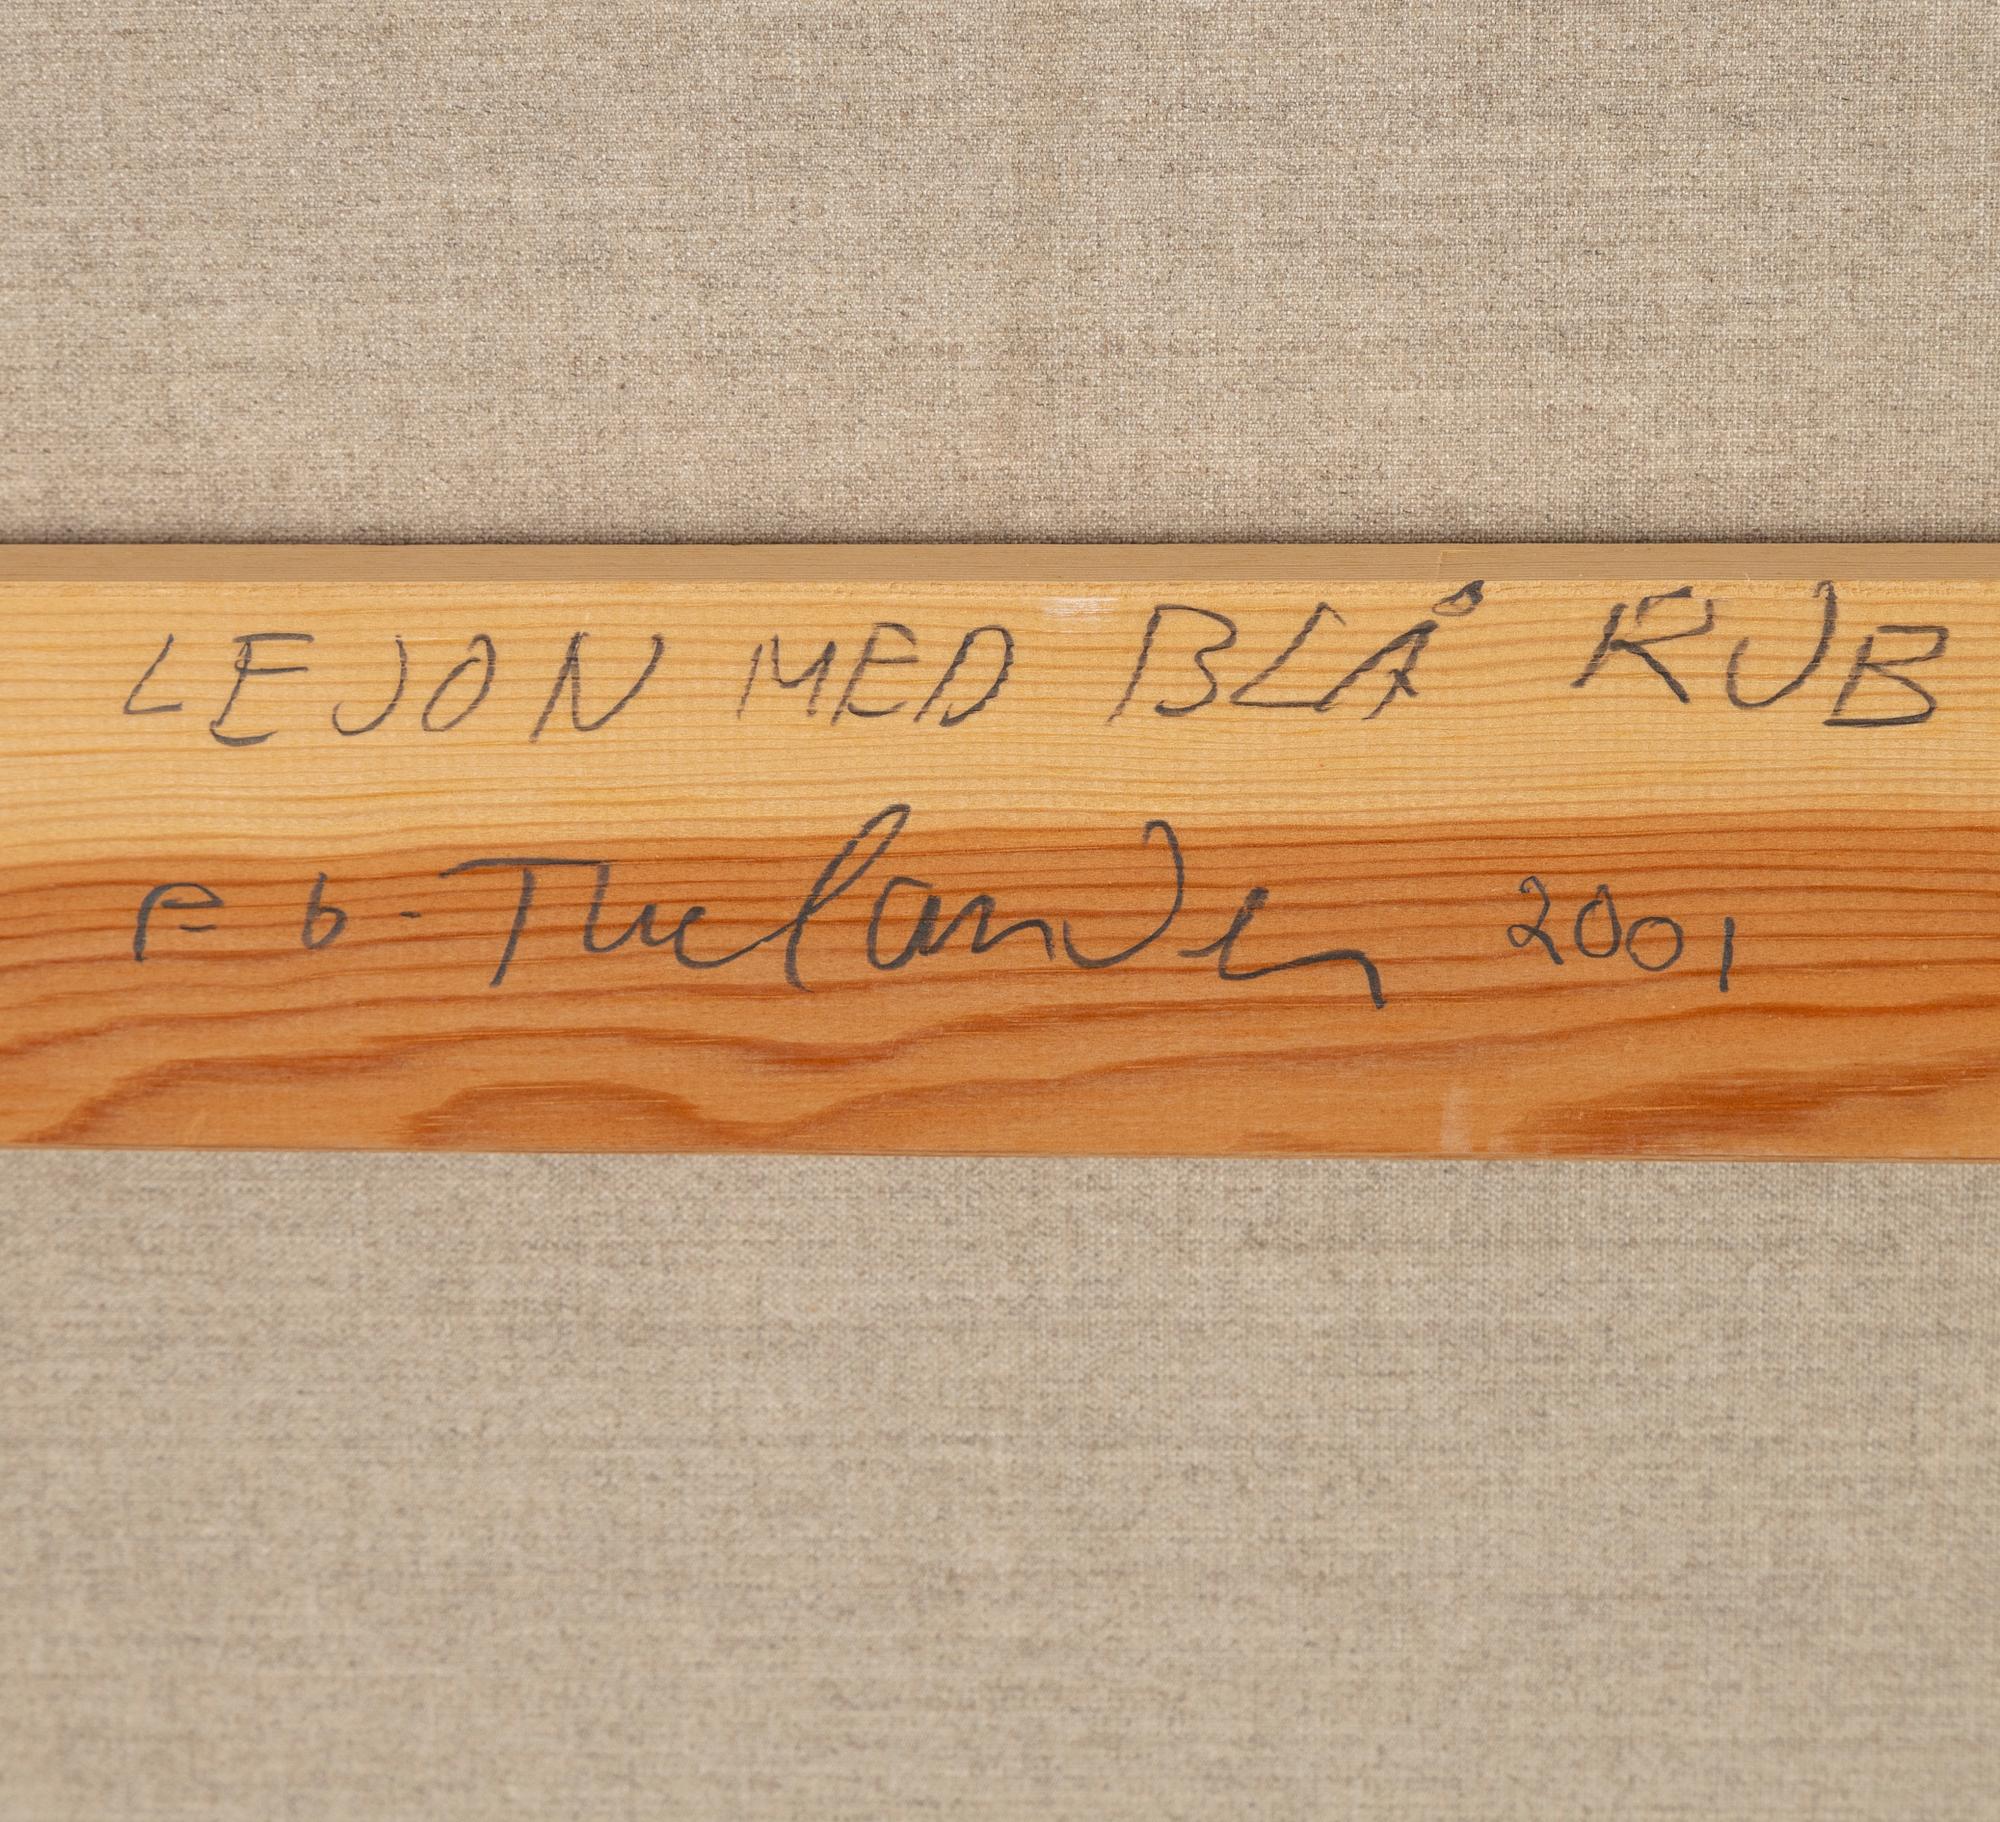 LEJON MED BLÅ KUB
P G - Thelander 2001